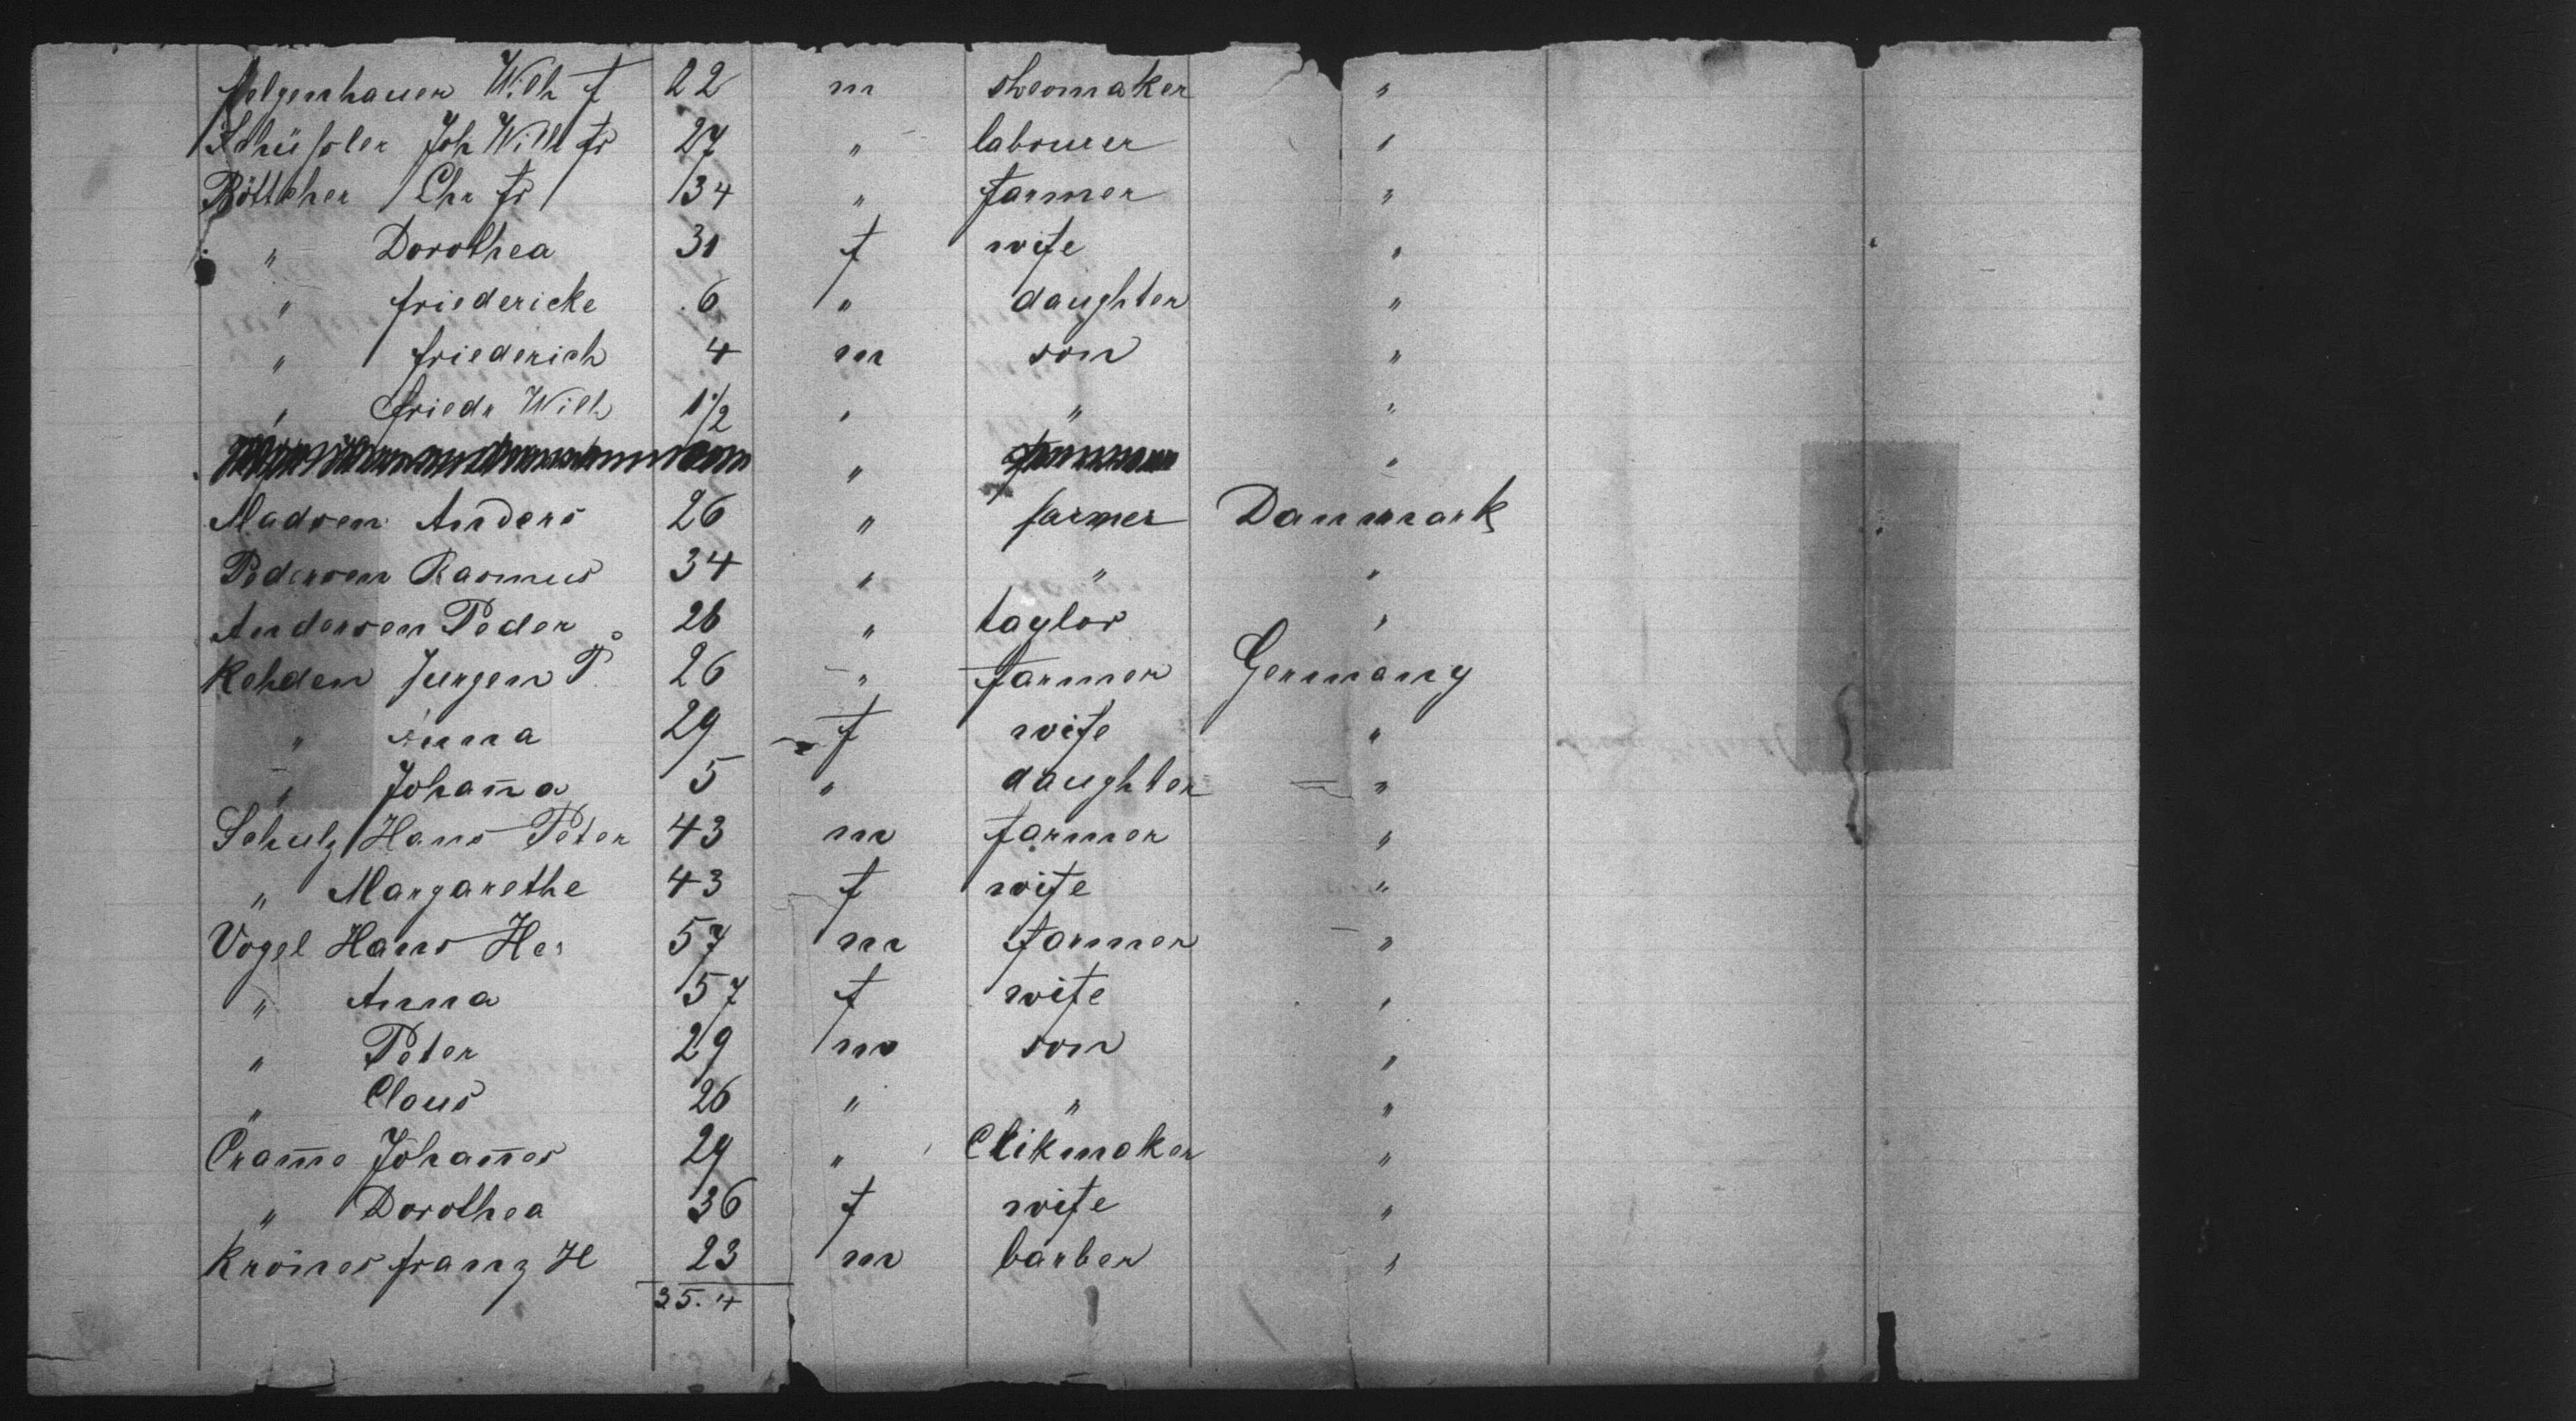 Felgenhauer Wilh F 22 m sheomaker "
Schüßler Joh Wilh Fr 27 " labourer "
Böttcher Chr Fr 34 " farmer "
" Dorothea 31 f wife "
" Friedericke 6 " daughter "
" Friederich 4 m son "
" Friedr Wilh 1 1/2 " " "
" "
Madsen Anders 26 " farmer Danmark
Pedersen Rasmus 34 " " "
Andersen Peder 26 " taylor "
Rehden Jurgen P. 26 " farmer Germany
" Anna 29 f wife "
" Johan̄a 5 " daughter "
Schulz Hans Peter 43 m farmer "
" Margarethe 43 f wife "
Vogel Hans 57 m farmer "
" Anna 57 f wife "
" Peter 29 m son "
" Claus 26 " " "
Cram̄e Johan̄es 29 " "
" Dorothea 36 f wife "
Franz H 23 m barber "
35.4